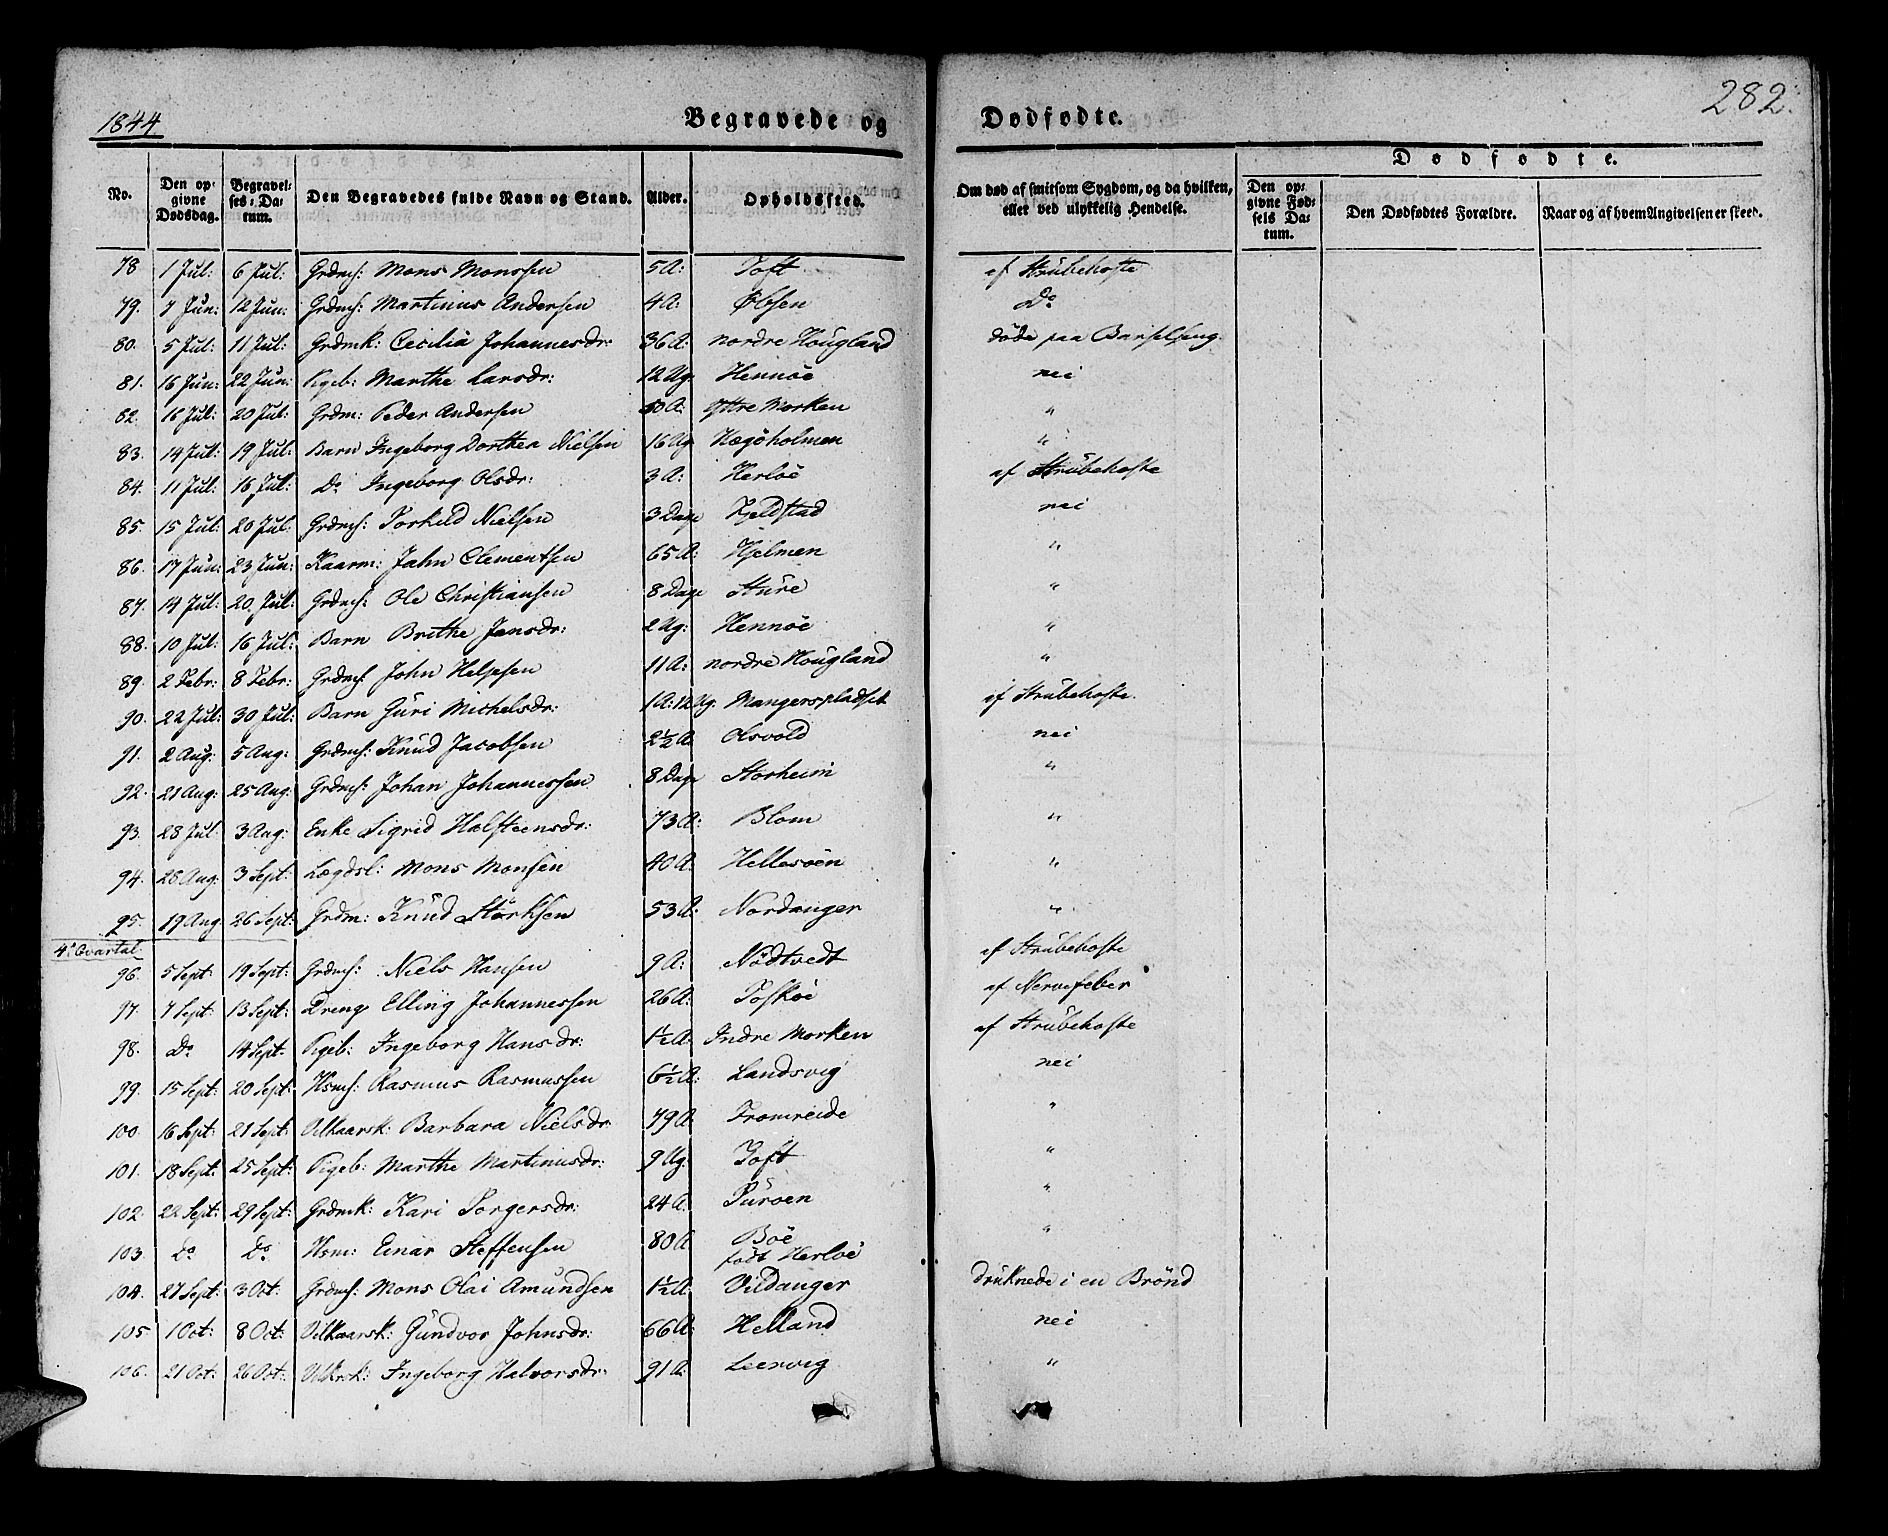 1844 Begravede og Dødfødte. 282.
No. Den opgivne Dødsdag. Begravelses-Datum. Den Begravedes fulde Navn og Stand. Alder. Opholdssted. Om død af smitsom Sygdom, og da hvilken, eller ved ulykkelig Hendelse. Dødfødte. Den opgivne Fødsels Datum. Den Dødfødtes Forældre. Naar og af hvem Angivelsen er skeet.
78 1 Jul: 6 Jul: Grdms: Mons Monssen 5 A: Toft af Strubehoste
79. 7 Jun: 12 Jun: Grdms: Martinus Andersen 4 A: Øbsen Do
80. 5 Jul: 11 Jul: Grdmk: Cecilia Johannesdr: 36 A: nordre Hougland døde paa Barselseng.
81. 16 Jun: 22 Jun: Pigeb: Marthe Larsdr: 12 Ug. Hennøe nei
82. 16 Jul: 20 Jul: Grdm: Peder Andersen 50 A: Yttre Morken "
83. 14 Jul: 19 Jul: Barn Ingeborg Dorthea Nielsen 16 Ug Hægøholmen "
84. 11 Jul: 16 Jul: Do Ingeborg Olsdr: 3 A: Herløe af Strubehoste
85. 15 Jul: 20 Jul. Grdms: Torkild Nielsen 3 Dage Kjeldstad nei
86. 17 Jun: 23 Jun: Kaarm: Jahn Clementsen 65 A: Hjelmen "
87. 14 Jul: 20, Jul: Grdms: Ole Christiansen 8 Dage Sture "
88. 10 Jul: 16 Jul: Barn Brithe Jensdr: 2 Ug: Hennøe "
89. 2 Febr: 8 Febr: Grdms: John Helgesen 11 A: nordre Hougland "
90. 22 Jul: 30 Jul: Barn Guri Michelsdr: 1 A: 12 Ug. Mangerspladset af Strubehoste.
91. 2 Aug: 5 Aug: Grdms: Knud Jacobsen 2½ A Olsvold nei
92. 21 Aug: 25 Aug: Grdms: Johan Johannessen 8 Dage Storheim "
93. 28 Jul 3 Aug: Enke Sigrid Halsteensdr: 73 A: Blom "
94. 28 Aug. 3 Sept: Lægdsl: Mons Monsen 40 A. Hellesøen "
95. 19 Aug 26 Sept: Grdm: Knud Størksen 53 A: Nordanger "
4' Qvartal
96. 5 Sept: 19 Sept: Grdms: Niels Hansen 9 A: Nødtvedt af Strubehoste
97. 7 Sept: 13 Sept: Dreng Elling Johannessen 26 A: Toskøe af Nervefeber
98. Do 14 Sept: Pigeb: Ingeborg Hansdr: 1½ A. Indre Morken af Strubehoste
99. 15 Sept: 20 Sept: Hsms: Rasmus Rasmussen 6½ A: Landsvig nei
100. 16 Sept: 21 Sept: Vilkaarsk: Barbara Nielsdr: 79 A: Fromreide "
101. 18 Sept: 25 Sept: Pigeb: Marthe Martinusdr: 9 Ug. Toft "
102. 22 Sept: 29 Sept: Grdmk: Kari Torgersdr: 24 A. Turøen "
103. Do Do Hsm: Einar Steffensen 80 A Bøe "
født Herløe
104. 27 Sept: 3 Oct: Grdms: Mons Olai Amundsen 1½ A. Vildanger druknede i en Brønd
105 1 Oct: 8 Oct: Vilkaarsk: Gundvor Johnsdr: 66 A: Helland nei
106. 21 Oct: 26 Oct: Vilkrsk: Ingeborg Halvorsdr: 91 A: Leervig "